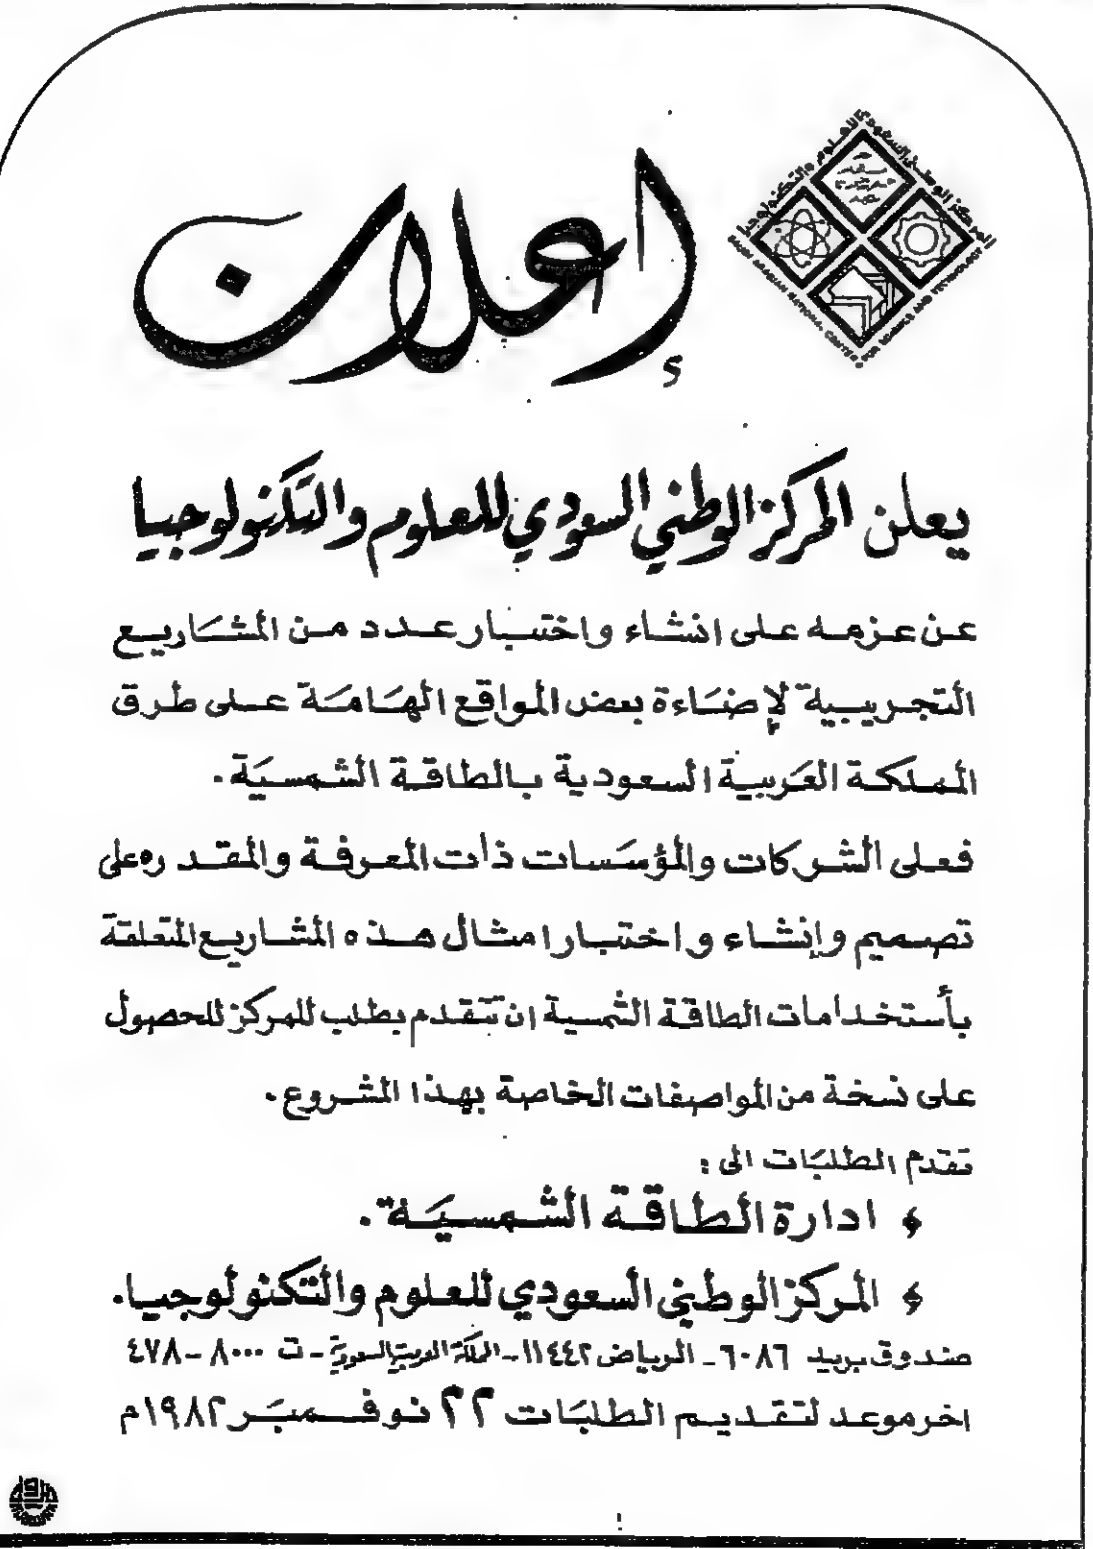 إعلان
المركز الوطني السعودي للعلوم والتكنولوجيا
SAUDI ARABIAN NATIONAL CENTER FOR SCIENCE AND TECHNOLOGY
يعلن المركز الوطني السعودي للعلوم والتكنولوجيا
عن عزمه على انشاء واختبار عدد من المشاريع
التجريبية لإضاءة بعض المواقع الهامة على طرق
المملكة العربية السعودية بالطاقة الشمسية.
فعلى الشركات والمؤسسات ذات المعرفة والمقدره على
تصميم وإنشاء واختبار امثال هذه المشاريع المتعلقة
بأستخدامات الطاقة الشمسية ان تتقدم بطلب للمركز للحصول
على نسخة من المواصفات الخاصة بهذا المشروع.
تقدم الطلبات الى :
ادارة الطاقة الشمسية.
المركز الوطني السعودي للعلوم والتكنولوجيا.
صندوق بريد ٦٠٨٦ - الرياض ١١٤٤٢ - المملكة العربية السعودية - ت ٨٠٠٠ - ٤٧٨
اخر موعد لتقديم الطلبات ٢٢ نوفمبر ١٩٨٢م